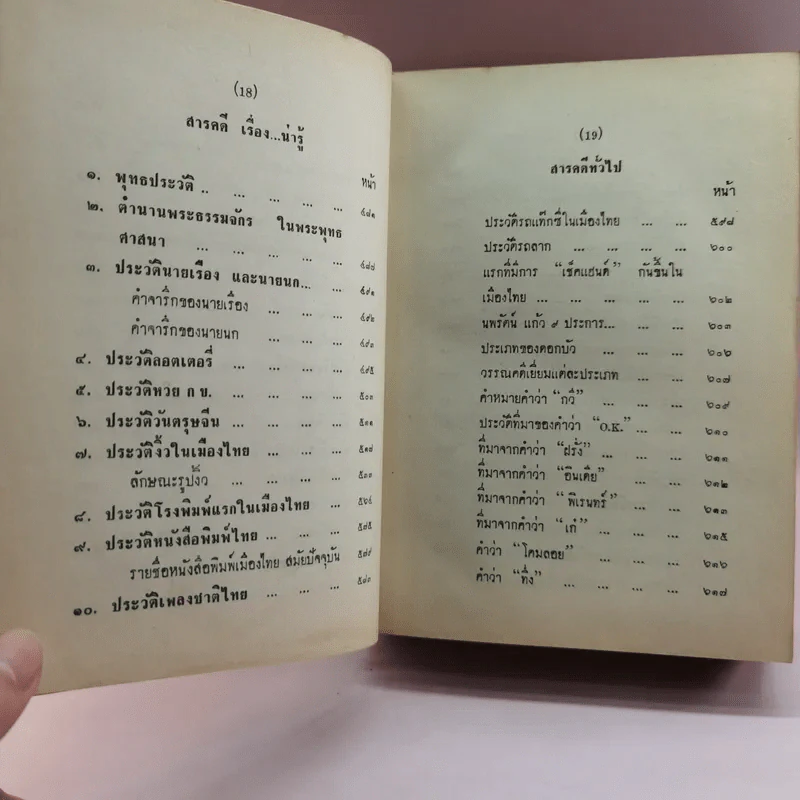 (18)
สารคดี เรื่อง...น่ารู้
หน้า
๑. พุทธประวัติ .. ... ... ... ... ๔๘๑
๒. ตำนานพระธรรมจักร ในพระพุทธ
ศาสนา ... ... ... ... ๔๘๗
๓. ประวัตินายเรือง และนายนก... ... ๔๙๑
คำจารึกของนายเรือง ... ... ๔๙๒
คำจารึกของนายนก ... ... ๔๙๓
๔. ประวัติลอตเตอรี่ ... ... ... ๔๙๕
๕. ประวัติหวย ก ข. ... ... ... ๕๐๓
๖. ประวัติวันตรุษจีน ... ... ... ๕๑๑
๗. ประวัติงิ้วในเมืองไทย ... ... ๕๑๗
ลักษณะรูปงิ้ว ... ... ... ๕๓๓
๘. ประวัติโรงพิมพ์แรกในเมืองไทย ...
๙. ประวัติหนังสือพิมพ์ไทย ... ...
รายชื่อหนังสือพิมพ์เมืองไทย สมัยปัจจุบัน
๑๐. ประวัติเพลงชาติไทย ... ... ...
(19)
สารคดีทั่วไป
หน้า
ประวัติรถแท๊กซี่ในเมืองไทย ... ... ๕๙๘
ประวัติรถลาก ... ... ... ... ๖๐๐
แรกที่มีการ “เช็คแฮนด์” กันขึ้นใน
เมืองไทย ... ... ... ... ... ๖๐๒
นพรัตน์ แก้ว ๙ ประการ... ... ... ๖๐๓
ประเภทของดอกบัว ... ... ... ๖๐๖
วรรณคดีเยี่ยมแต่ละประเภท ... ... ๖๐๗
คำหมายคำว่า “กวี” ... ... ... ๖๐๙
ประวัติที่มาของคำว่า “O.K.” ... ... ๖๑๐
ที่มาจากคำว่า “ฝรั่ง” ... ... ... ๖๑๑
ที่มาจากคำว่า “อินเดีย” ... ... ... ๖๑๒
ที่มาจากคำว่า “พิเรนทร์” ... ... ๖๑๓
ที่มาจากคำว่า “เก๋” ... ... ... ๖๑๕
คำว่า “โคมลอย” ... ... ... ๖๑๖
คำว่า “ทึ่ง” ... ... ... ... ๖๑๗